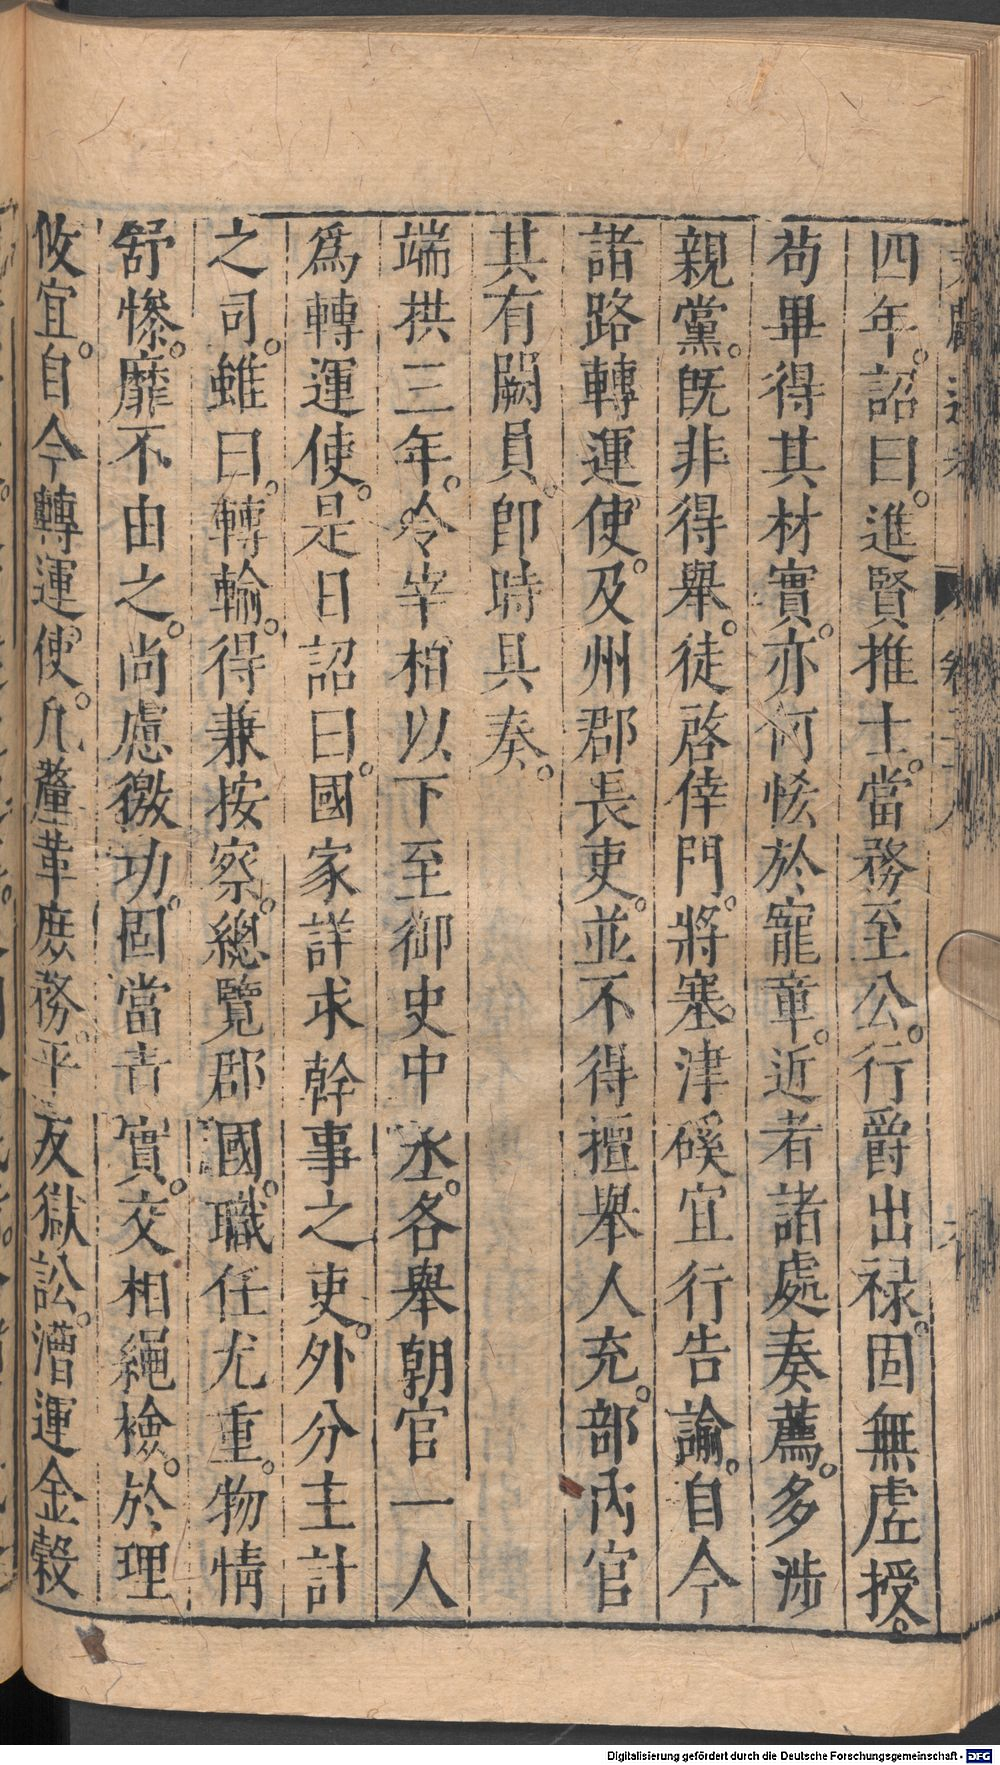 四年。詔曰。進賢推士。當務至公。行爵出祿。固無虛授。
苟畢得其材實。亦何恡於寵章。近者諸處奏薦。多涉
親黨。旣非得舉。徒啓倖門。將塞津磎宜行告諭。自今
諸路轉運使。及州郡長吏。並不得擅舉人充。部内官
其有闕員。即時具奏。
端拱三年。令宰相以下至御史中丞。各舉朝官一人
爲轉運使。是日詔曰。國家詳求幹事之吏。外分主計
之司。雖曰。轉輸。得兼按察。總覽郡國。職任尤重。物情
舒慘。靡不由之。尚慮徼功。固當責實。交相繩檢。於理
攸宜。自今轉運使。凡釐革庶務。平反獄訟。漕運金穀
Digitalisierung gefördert durch die Deutsche Forschungsgemeinschaft - DFG